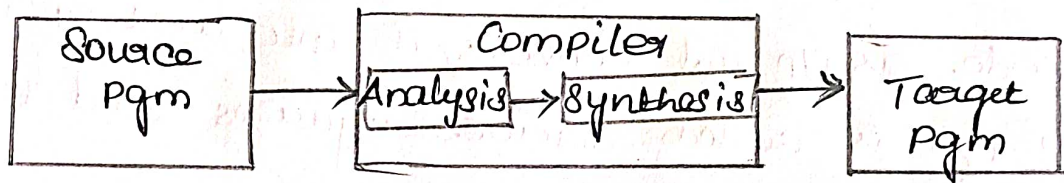 Source
Pgm
Compiler
Analysis
Synthesis
Target
Pgm